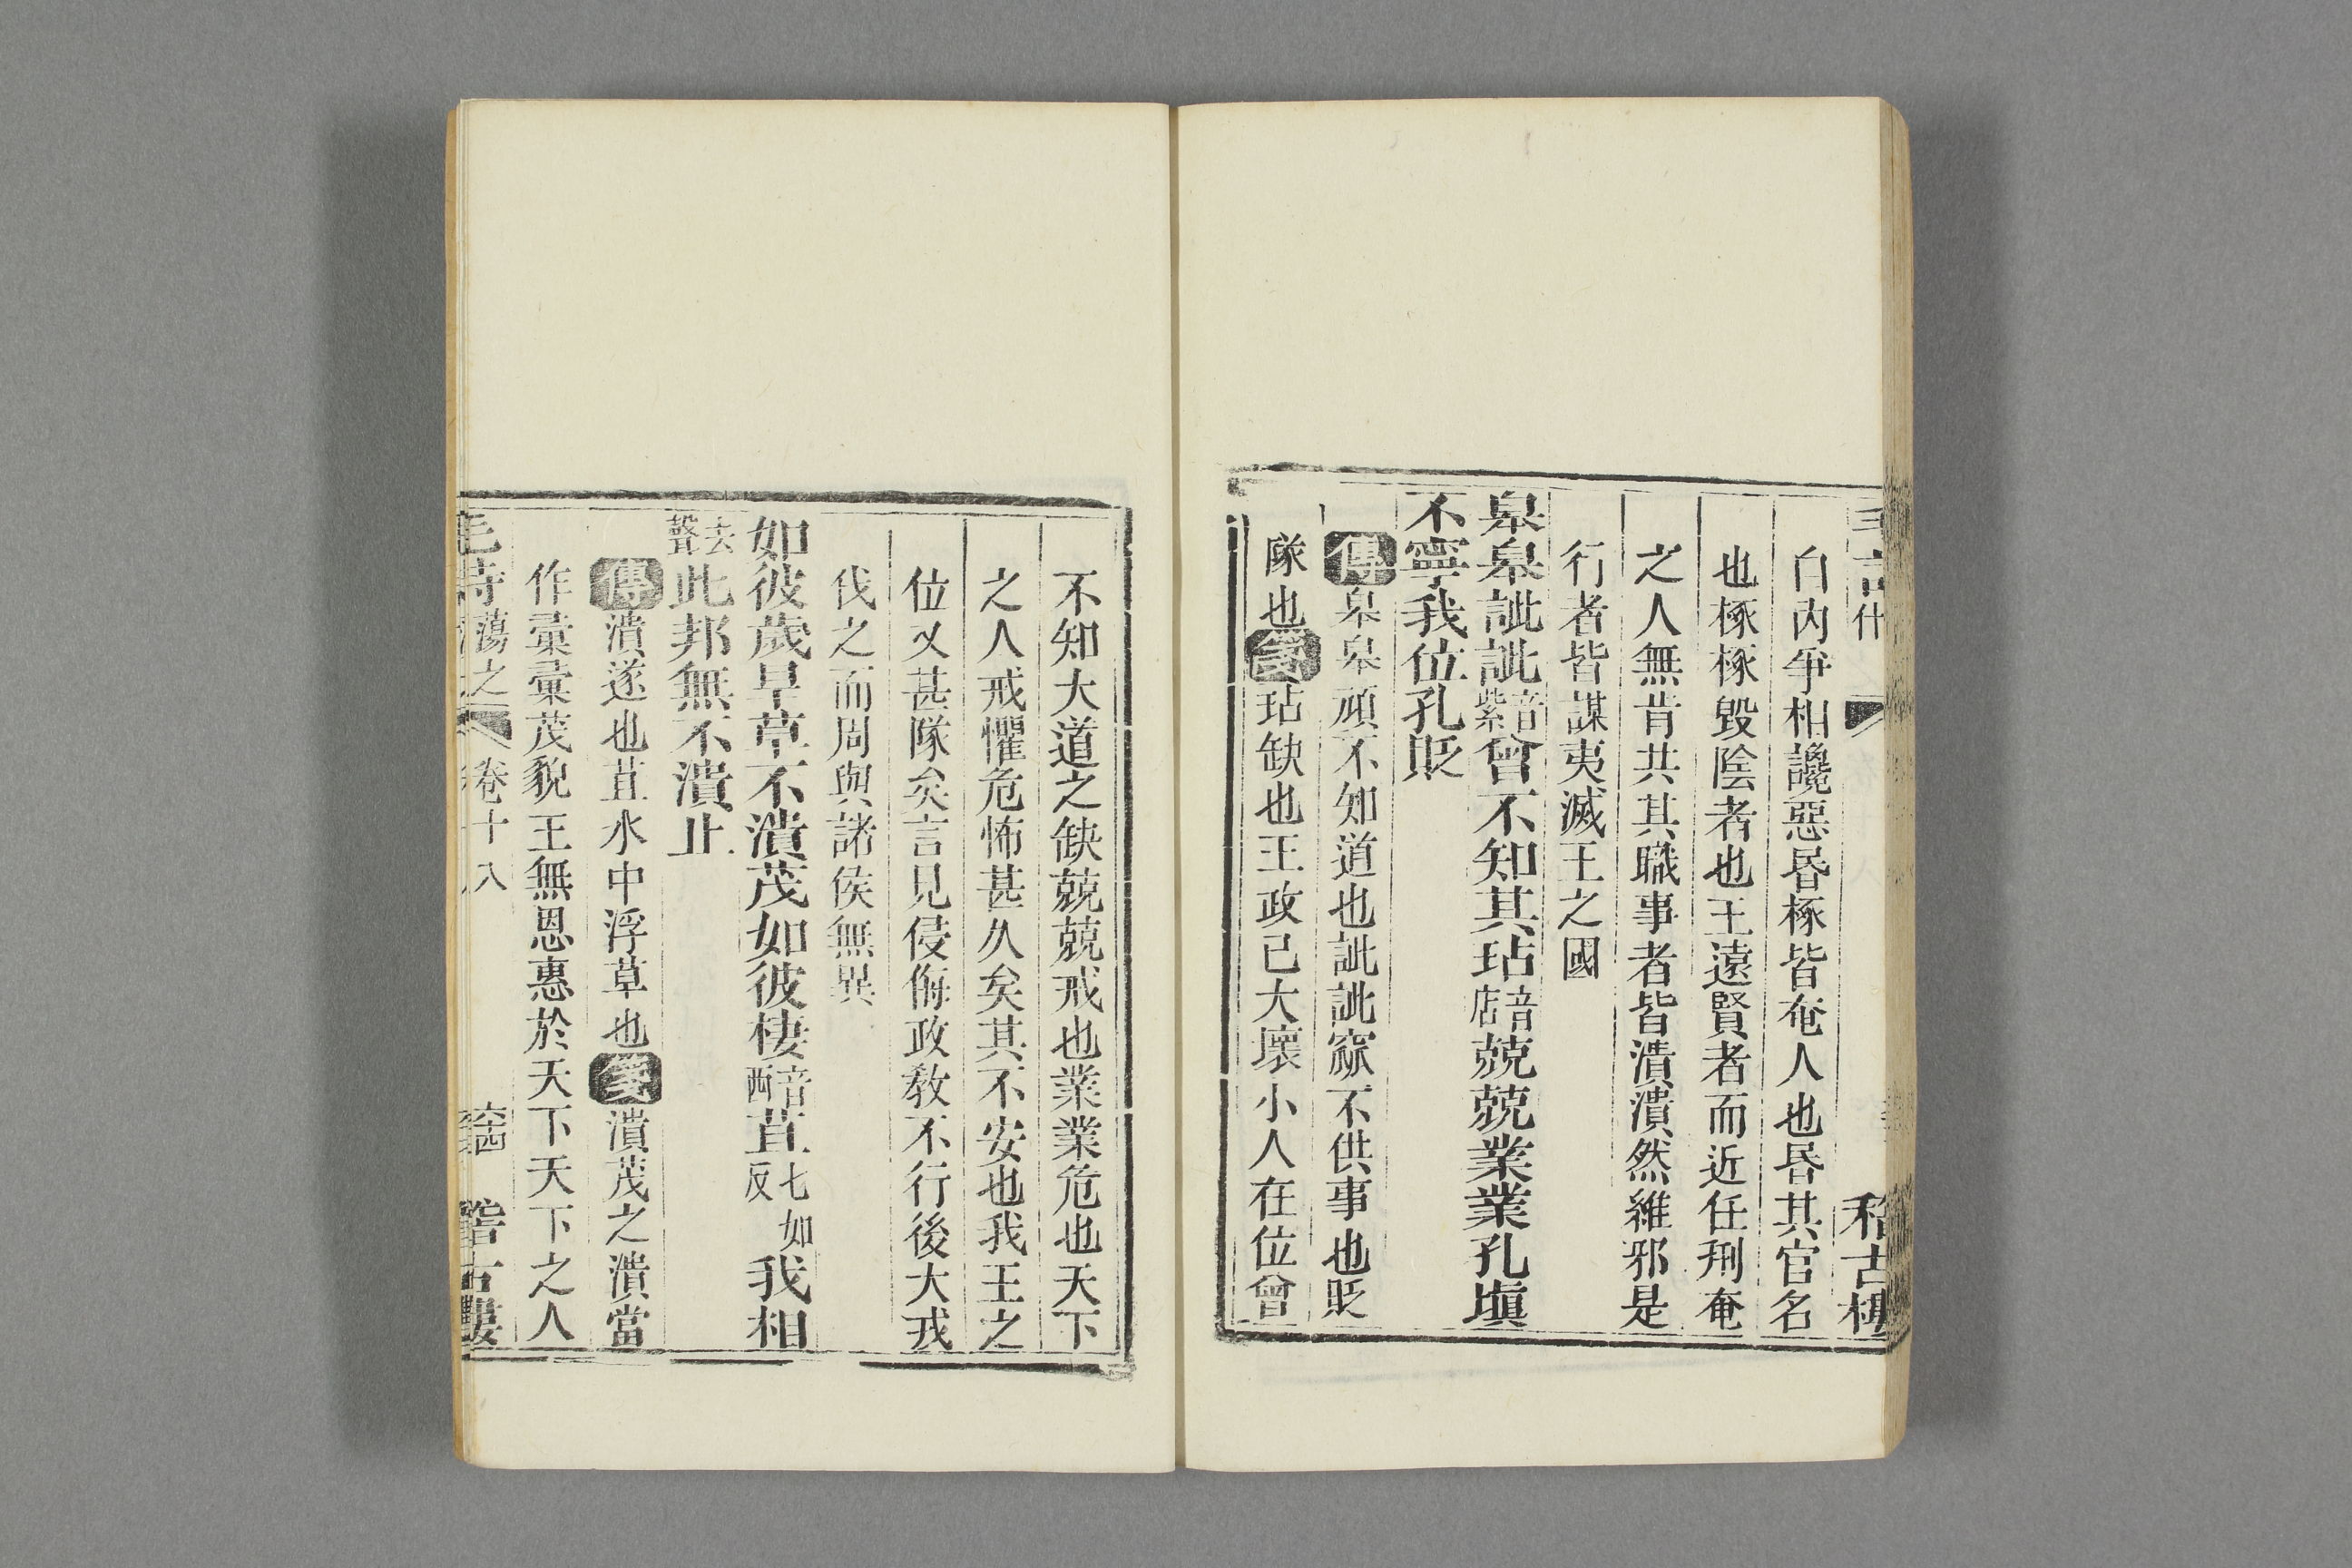 稽古樓
自內爭相讒惡昬椓皆奄人也昬其官名
也椓椓毀陰者也王遠賢者而近任刑奄
之人無肯共其職事者皆潰潰然維邪是
行者皆謀夷滅王之國
皐皐訿訿音紫曾不知其玷音店兢兢業業孔塡
不寧我位孔貶
傳皐皐頑不知道也訿訿窳不供事也貶
隊也箋玷缺也王政已大壞小人在位曾
不知大道之缺兢兢戒也業業危也天下
之人戒懼危怖甚久矣其不安也我王之
位又甚隊矣言見侵侮政教不行後大戎
伐之而周與諸侯無異
如彼歲旱草不潰茂如彼棲音西苴七如反我相
去聲此邦無不潰止
傳潰遂也苴水中浮草也箋潰茂之潰當
作彙彙茂貌王無恩惠於天下天下之人
毛詩 蕩之 卷十八 稽古樓